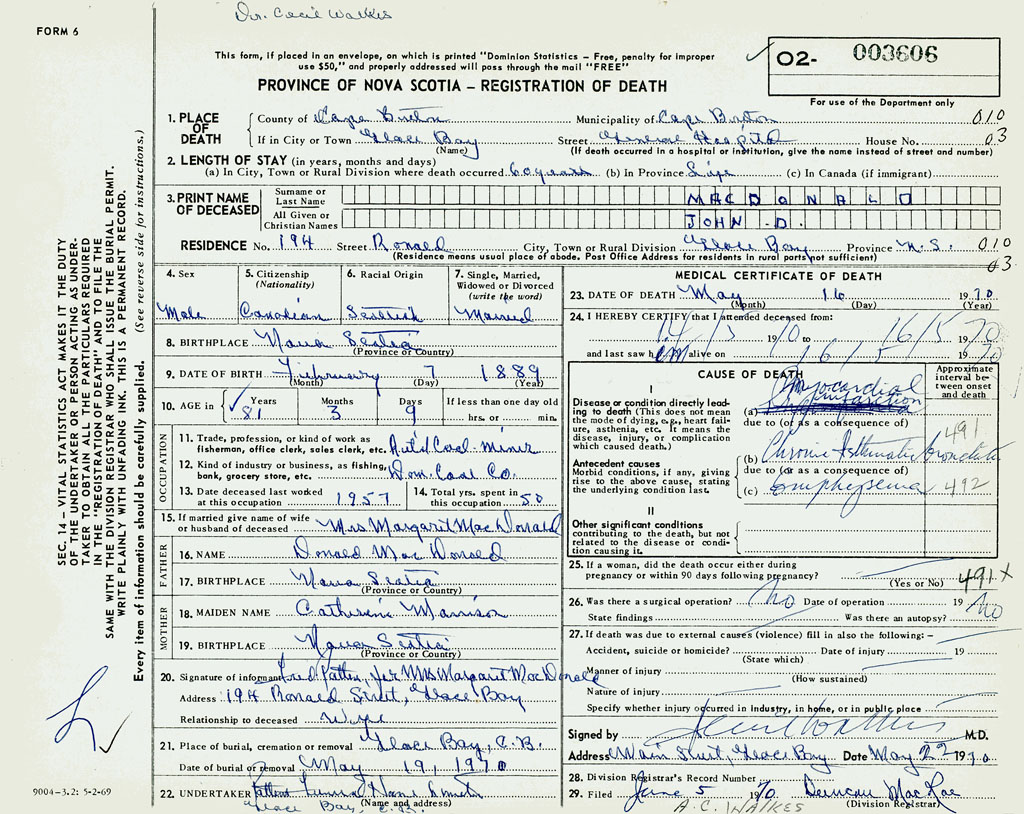 Dr. Cecil Walkes
FORM 6
This form, if placed in an envelope, on which is printed "Dominion Statistics – Free, penalty for improper
use $50," and properly addressed will pass through the mail "FREE"
PROVINCE OF NOVA SCOTIA – REGISTRATION OF DEATH
O2- 003606
For use of the Department only
SEC. 14 – VITAL STATISTICS ACT MAKES IT THE DUTY
OF THE UNDERTAKER OR PERSON ACTING AS UNDER-
TAKER TO OBTAIN ALL THE PARTICULARS REQUIRED
IN THE "REGISTRATION OF DEATH" AND TO FILE THE
SAME WITH THE DIVISION REGISTRAR WHO SHALL ISSUE THE BURIAL PERMIT.
WRITE PLAINLY WITH UNFADING INK. THIS IS A PERMANENT RECORD.
Every item of information should be carefully supplied. (See reverse side for instructions.)
1. PLACE OF DEATH
County of Cape Breton Municipality of Cape Breton 010
If in City or Town Glace Bay Street General Hospital House No. 03
(Name) (If death occurred in a hospital or institution, give the name instead of street and number)
2. LENGTH OF STAY (in years, months and days)
(a) In City, Town or Rural Division where death occurred 60 years (b) In Province Life (c) In Canada (if immigrant)
3. PRINT NAME OF DECEASED
Surname or Last Name MACDONALD
All Given or Christian Names JOHN D.
RESIDENCE No. 194 Street Ronald City, Town or Rural Division Glace Bay Province N.S. 010
(Residence means usual place of abode. Post Office Address for residents in rural parts not sufficient) 03
4. Sex Male
5. Citizenship (Nationality) Canadian
6. Racial Origin Scottish
7. Single, Married, Widowed or Divorced (write the word) Married
8. BIRTHPLACE Nova Scotia
(Province or Country)
9. DATE OF BIRTH February 7 1889
(Month) (Day) (Year)
10. AGE in Years 81 Months 3 Days 9 If less than one day old hrs. or min.
OCCUPATION
11. Trade, profession, or kind of work as fisherman, office clerk, sales clerk, etc. Ret'd Coal-Miner
12. Kind of industry or business, as fishing, bank, grocery store, etc. Dom. Coal Co.
13. Date deceased last worked at this occupation 1957
14. Total yrs. spent in this occupation 50
15. If married give name of wife or husband of deceased Mrs Margaret MacDonald
FATHER
16. NAME Donald MacDonald
17. BIRTHPLACE Nova Scotia
(Province or Country)
MOTHER
18. MAIDEN NAME Catherine Morrison
19. BIRTHPLACE Nova Scotia
(Province or Country)
20. Signature of informant Fred Patten, per Mrs Margaret MacDonald
Address 194 Ronald Street, Glace Bay
Relationship to deceased Wife
21. Place of burial, cremation or removal Glace Bay, C.B.
Date of burial or removal May 19, 1970
22. UNDERTAKER Patten Funeral Home Limited
(Name and address)
Glace Bay, C.B.
9004-3.2: 5-2-69
MEDICAL CERTIFICATE OF DEATH
23. DATE OF DEATH May 16 1970
(Month) (Day) (Year)
24. I HEREBY CERTIFY that I attended deceased from:
14/5 1970 to 16/5 1970
and last saw him alive on 16/5 1970
CAUSE OF DEATH
Approximate interval between onset and death
I
Disease or condition directly leading to death (This does not mean the mode of dying, e.g., heart failure, asthenia, etc. It means the disease, injury, or complication which caused death.)
(a) Myocardial Infarction
due to (or as a consequence of) 491
Antecedent causes
Morbid conditions, if any, giving rise to the above cause, stating the underlying condition last.
(b) Chronic Asthmatic bronchitis
due to (or as a consequence of)
(c) emphysema 492
II
Other significant conditions contributing to the death, but not related to the disease or condition causing it.
25. If a woman, did the death occur either during pregnancy or within 90 days following pregnancy?
(Yes or No) 491X
26. Was there a surgical operation? No Date of operation 19
State findings Was there an autopsy? No
27. If death was due to external causes (violence) fill in also the following: –
Accident, suicide or homicide? Date of injury 19
(State which)
Manner of injury
(How sustained)
Nature of injury
Specify whether injury occurred in industry, in home, or in public place
Signed by Cecil Walkes M.D.
Address Main Street, Glace Bay Date May 22 1970
28. Division Registrar's Record Number
29. Filed June 5 1970 Duncan MacRae
(Division Registrar)
A.C. WALKES